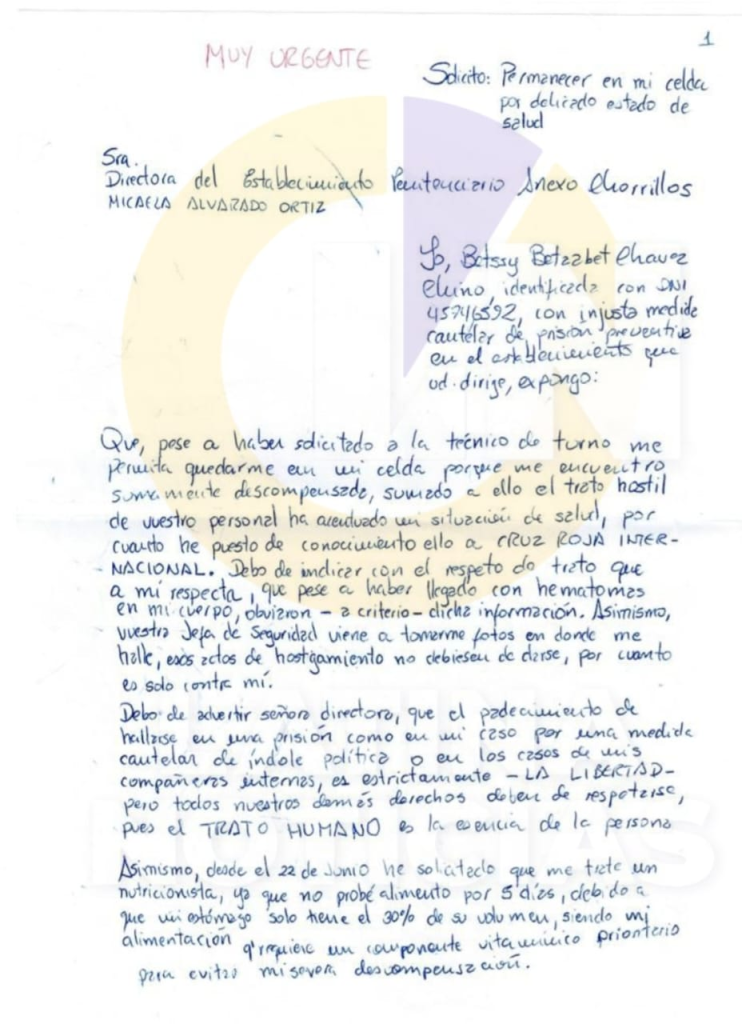 1
MUY URGENTE
Solicito: Permanecer en mi celda
por delicado estado de
salud
Sra.
Directora del Establecimiento Penitenciario Anexo Chorrillos
MICAELA ALVARADO ORTIZ
Yo, Betssy Betzabet Chavez
Chino, identificada con DNI
45746592, con injusta medida
cautelar de prisión preventiva
en el establecimiento que
ud. dirige, expongo:
Que, pese a haber solicitado a la técnico de turno me
permita quedarme en mi celda porque me encuentro
sumamente descompensada, sumado a ello el trato hostil
de vuestro personal ha acentuado mi situación de salud, por
cuanto he puesto de conocimiento ello a CRUZ ROJA INTER-
NACIONAL. Debo de indicar con el respeto do trato que
a mí respecta, que pese a haber llegado con hematomas
en mi cuerpo, obviaron - a criterio - dicha información. Asimismo,
vuestra Jefa de Seguridad viene a tomarme fotos en donde me
halle, esos actos de hostigamiento no debiesen de darse, por cuanto
es solo contra mí.
Debo de advertir señora directora, que el padecimiento de
hallarse en una prisión como en mi caso por una medida
cautelar de índole política o en los casos de mis
compañeras internas, es estrictamente - LA LIBERTAD -
pero todos nuestros demás derechos deben de respetarse,
pues el TRATO HUMANO es la esencia de la persona
Asimismo, desde el 22 de Junio he solicitado que me trate un
nutricionista, ya que no probé alimento por 5 días, debido a
que mi estómago solo tiene el 30% de su volumen, siendo mi
alimentación q' requiere un componente vitamínico prioritario
para evitar mi severa descompensación.
LATINA
NOTICIAS